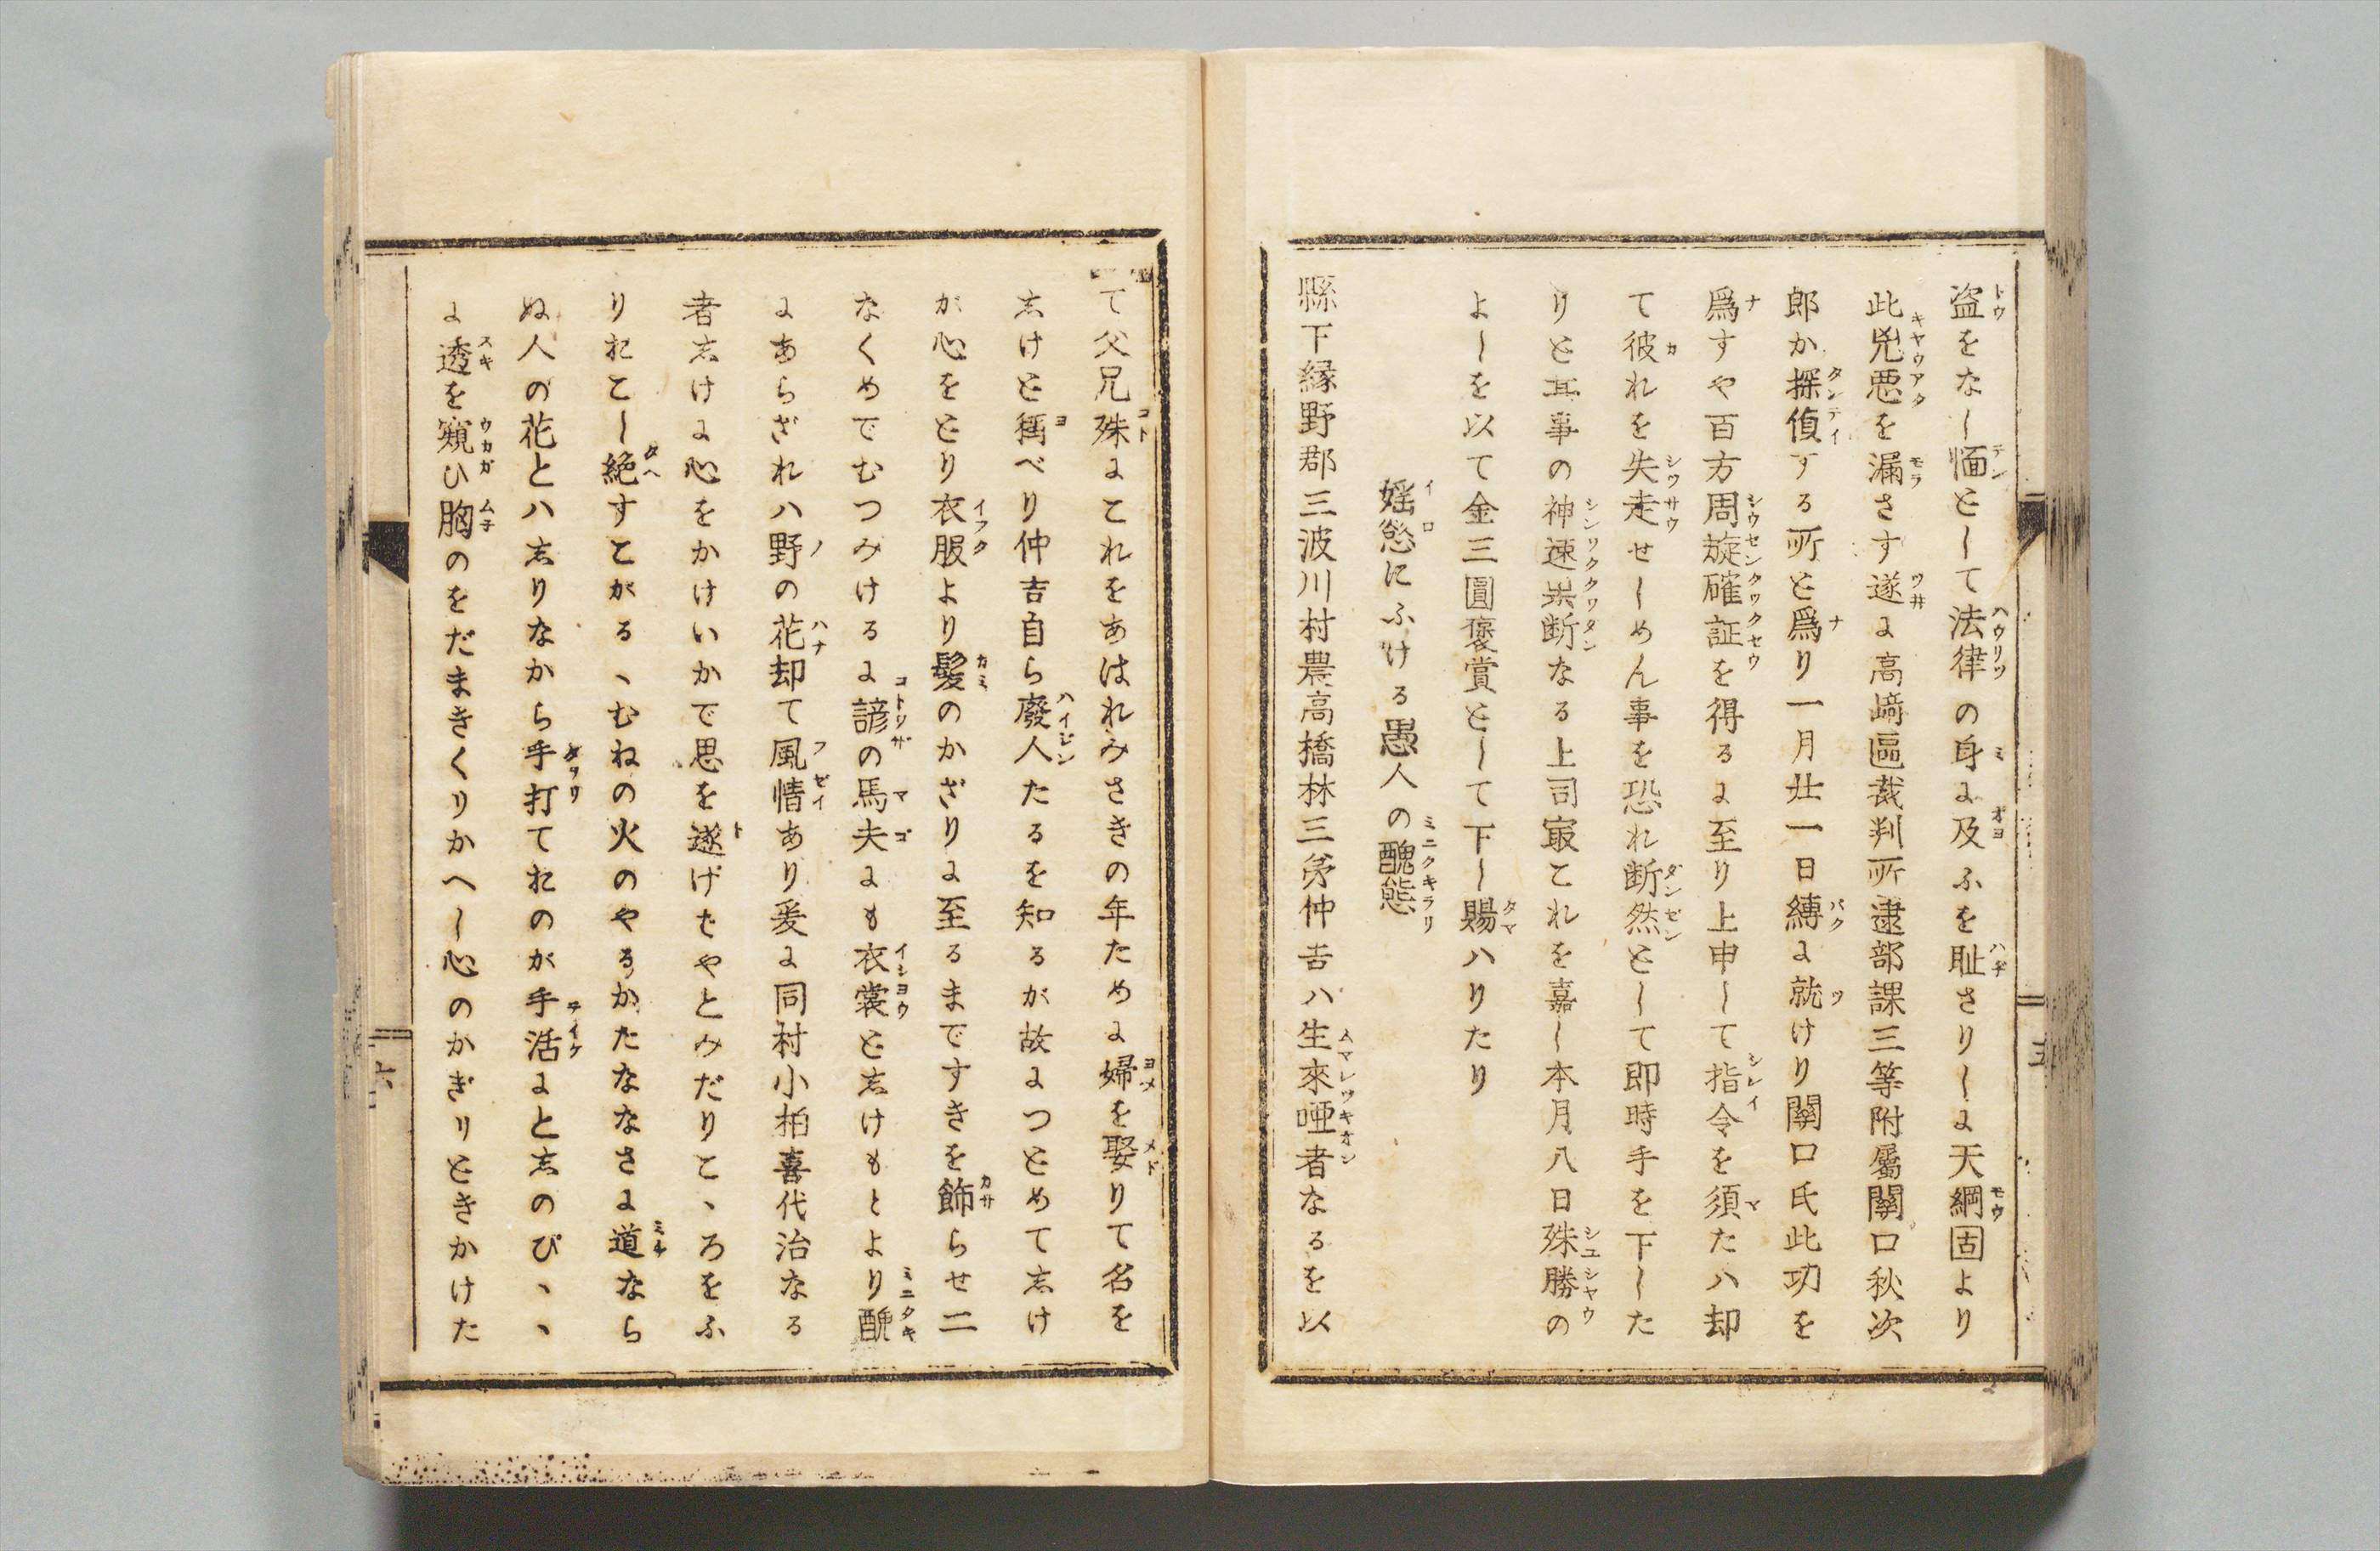 盗をなし恬として法律の身に及ふを耻さりしに天綱固より
此兇悪を漏さす遂に高﨑區裁判所逮部課三等附屬關口秋次
郎か探偵する所と爲り一月廿一日縛に就けり關口氏此功を
爲すや百方周旋確証を得るに至り上申して指令を須たハ却
て彼れを失走せしめん事を恐れ断然として即時手を下した
りと其事の神速果断なる上司㝡これを嘉し本月八日殊勝の
よしを以て金三圓褒賞として下し賜ハりたり
婬慾にふける愚人の醜態
縣下緑野郡三波川村農高橋林三男仲吉ハ生來唖者なるを以
て父兄殊にこれをあはれみさきの年ために婦を娶りて名を
志けと稱べり仲吉自ら廢人たるを知るが故につとめて志け
が心をとり衣服より髪のかざりに至るまですきを飾らせ二
なくめでむつみけるに諺の馬夫にも衣裳と志けもとより醜
にあらざれハ野の花却て風情あり爰に同村小柏喜代治なる
者志けに心をかけいかで思を遂げむやとみだりこゝろをふ
りおこし絶すこがるゝむねの火のやるかたなななさに道なら
ぬ人の花とハ志りなから手打ておのが手活にと志のびゝゝ
に透を窺ひ胸のをだまきくりかへし心のかぎりときかけた
五
六